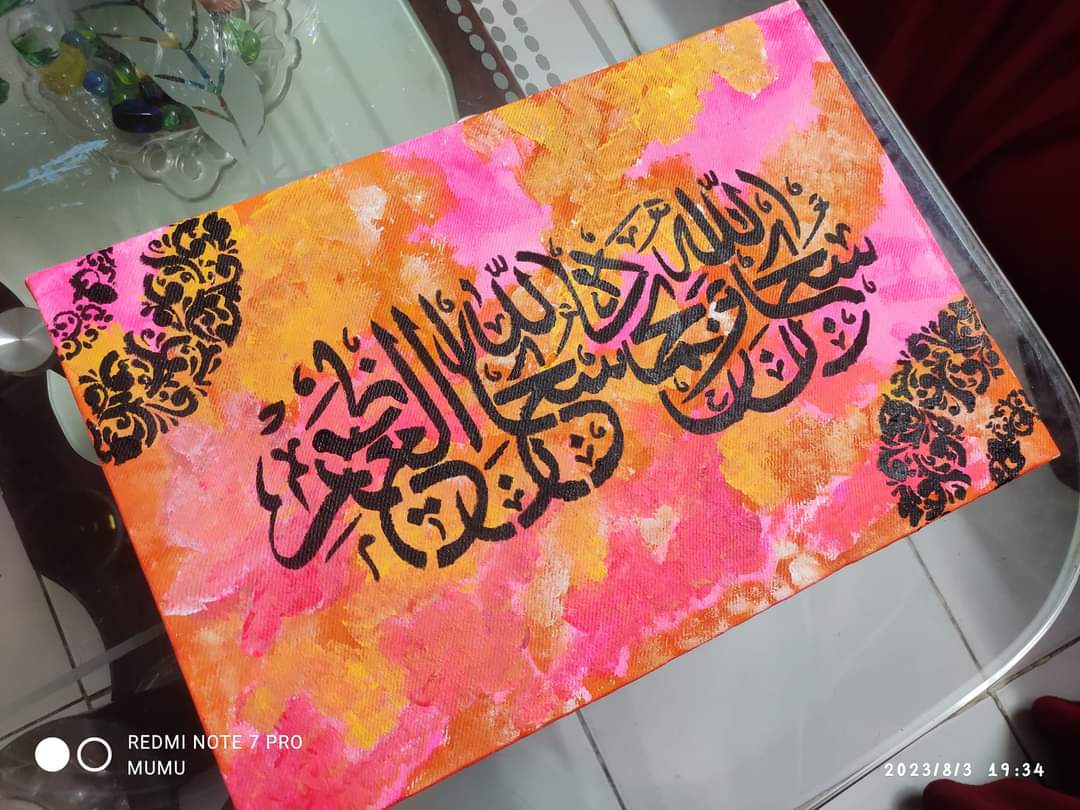 سبحان الله وبحمده سبحان الله العظيم
REDMI NOTE 7 PRO
MUMU
2023/8/3 19:34